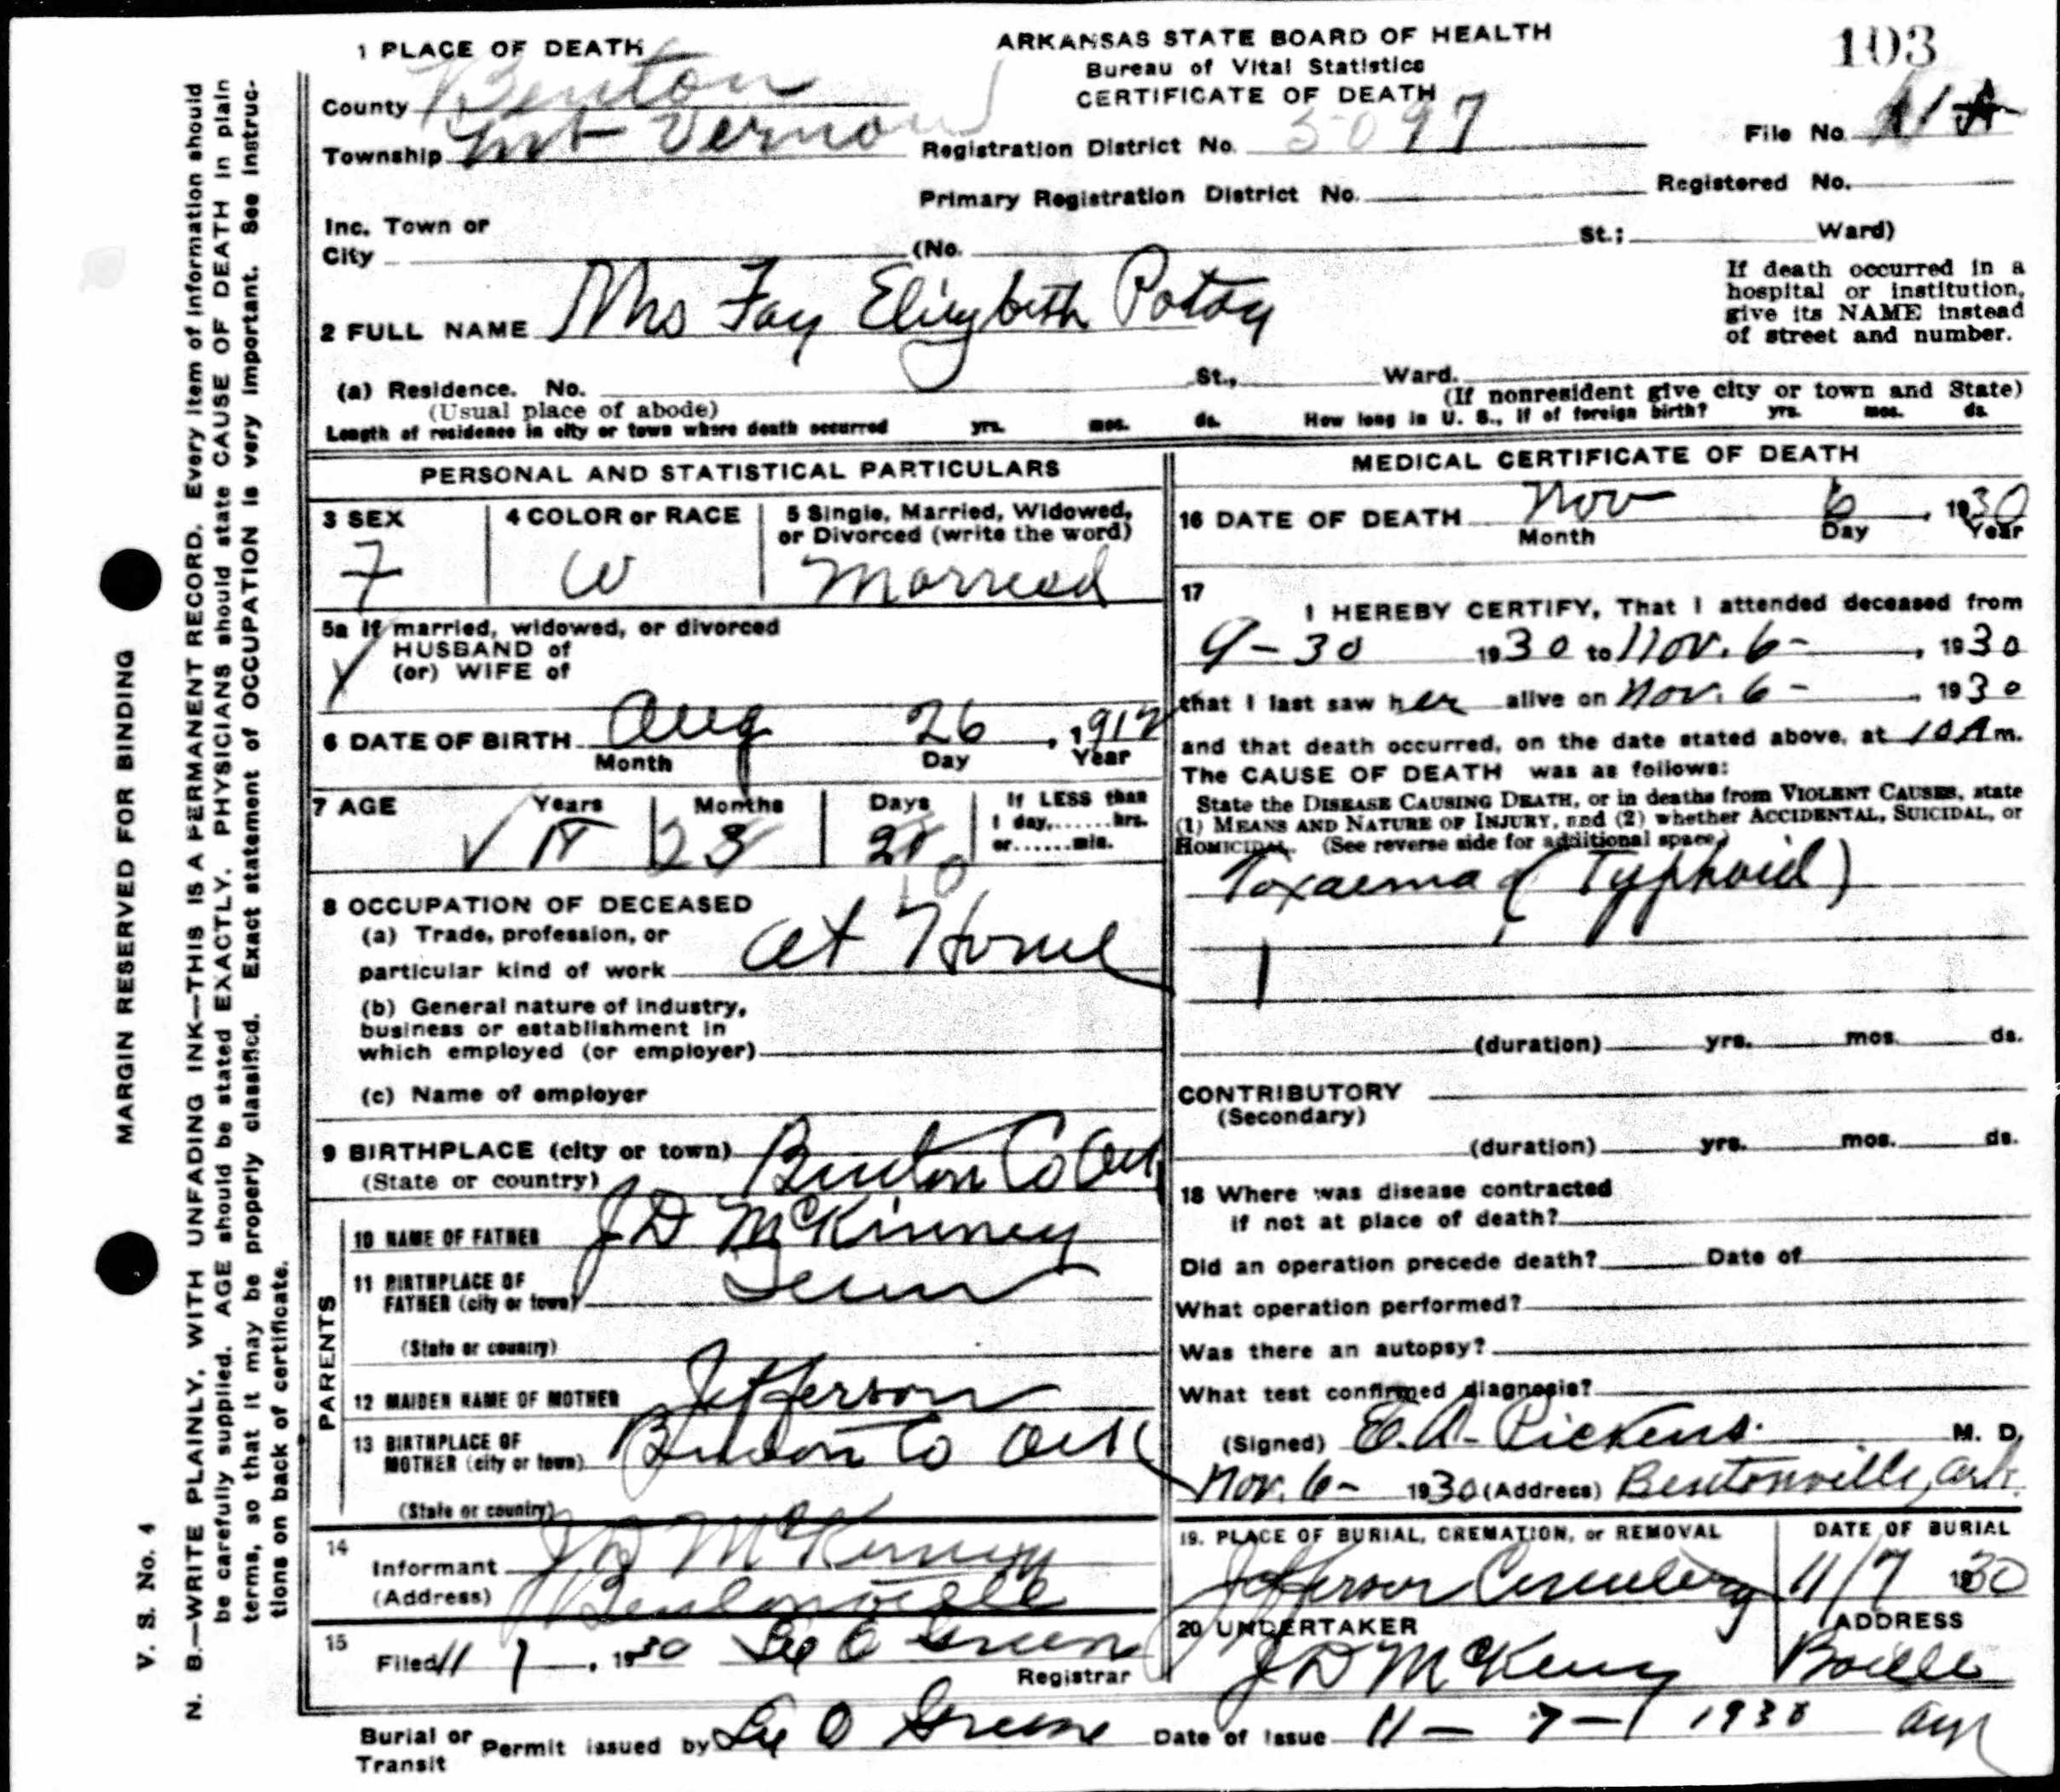 1 PLACE OF DEATH
ARKANSAS STATE BOARD OF HEALTH
Bureau of Vital Statistics
CERTIFICATE OF DEATH
103
County Benton
Township Mt Vernon
Registration District No. 5097
File No.
Primary Registration District No.
Registered No.
Inc. Town or
City (No. St.; Ward)
If death occurred in a
hospital or institution,
give its NAME instead
of street and number.
2 FULL NAME Mrs Fay Elizybeth
(a) Residence. No. St., Ward.
(Usual place of abode)
(If nonresident give city or town and State)
Length of residence in city or town where death occurred yrs. mos. ds. How long in U. S., if of foreign birth? yrs. mos. ds.
PERSONAL AND STATISTICAL PARTICULARS
3 SEX
F
4 COLOR or RACE
W
5 Single, Married, Widowed,
or Divorced (write the word)
Married
5a If married, widowed, or divorced
HUSBAND of
(or) WIFE of
6 DATE OF BIRTH Aug 26, 1912
Month Day Year
7 AGE Years Months Days
If LESS than
1 day,......hrs.
or......min.
8 OCCUPATION OF DECEASED
(a) Trade, profession, or
particular kind of work At Home
(b) General nature of industry,
business or establishment in
which employed (or employer)
(c) Name of employer
9 BIRTHPLACE (city or town) Benton Co Ark
(State or country)
PARENTS
10 NAME OF FATHER J D McKinney
11 BIRTHPLACE OF
FATHER (city or town) Tenn
(State or country)
12 MAIDEN NAME OF MOTHER Jefferson
13 BIRTHPLACE OF
MOTHER (city or town) Benton Co Ark
(State or country)
14
Informant J D McKinney
(Address) Bentonville
15
Filed 11 7, 1930 Lee O Green
Registrar
MEDICAL CERTIFICATE OF DEATH
16 DATE OF DEATH Nov 6, 1930
Month Day Year
17
I HEREBY CERTIFY, That I attended deceased from
9-30 1930 to Nov. 6-, 1930
that I last saw her alive on Nov. 6-, 1930
and that death occurred, on the date stated above, at 10 A m.
The CAUSE OF DEATH was as follows:
State the DISEASE CAUSING DEATH, or in deaths from VIOLENT CAUSES, state
(1) MEANS AND NATURE OF INJURY, and (2) whether ACCIDENTAL, SUICIDAL, or
HOMICIDAL. (See reverse side for additional space)
Toxaemia (Typhoid)
1
(duration) yrs. mos. ds.
CONTRIBUTORY
(Secondary)
(duration) yrs. mos. ds.
18 Where was disease contracted
if not at place of death?
Did an operation precede death? Date of
What operation performed?
Was there an autopsy?
What test confirmed diagnosis?
(Signed) E. A. Pickens. M. D.
Nov. 6- 1930 (Address) Bentonville, Ark.
19. PLACE OF BURIAL, CREMATION, or REMOVAL
Jefferson Cemetery
DATE OF BURIAL
11/7 1930
20 UNDERTAKER
J D McKenny
ADDRESS
Bville
Ark
Burial or
Transit Permit issued by Lee O Greene Date of Issue 11-7-1930
MARGIN RESERVED FOR BINDING
V. S. No. 4
N. B.—WRITE PLAINLY, WITH UNFADING INK—THIS IS A PERMANENT RECORD. Every item of information should
be carefully supplied. AGE should be stated EXACTLY. PHYSICIANS should state CAUSE OF DEATH in plain
terms, so that it may be properly classified. Exact statement of OCCUPATION is very important. See instruc-
tions on back of certificate.